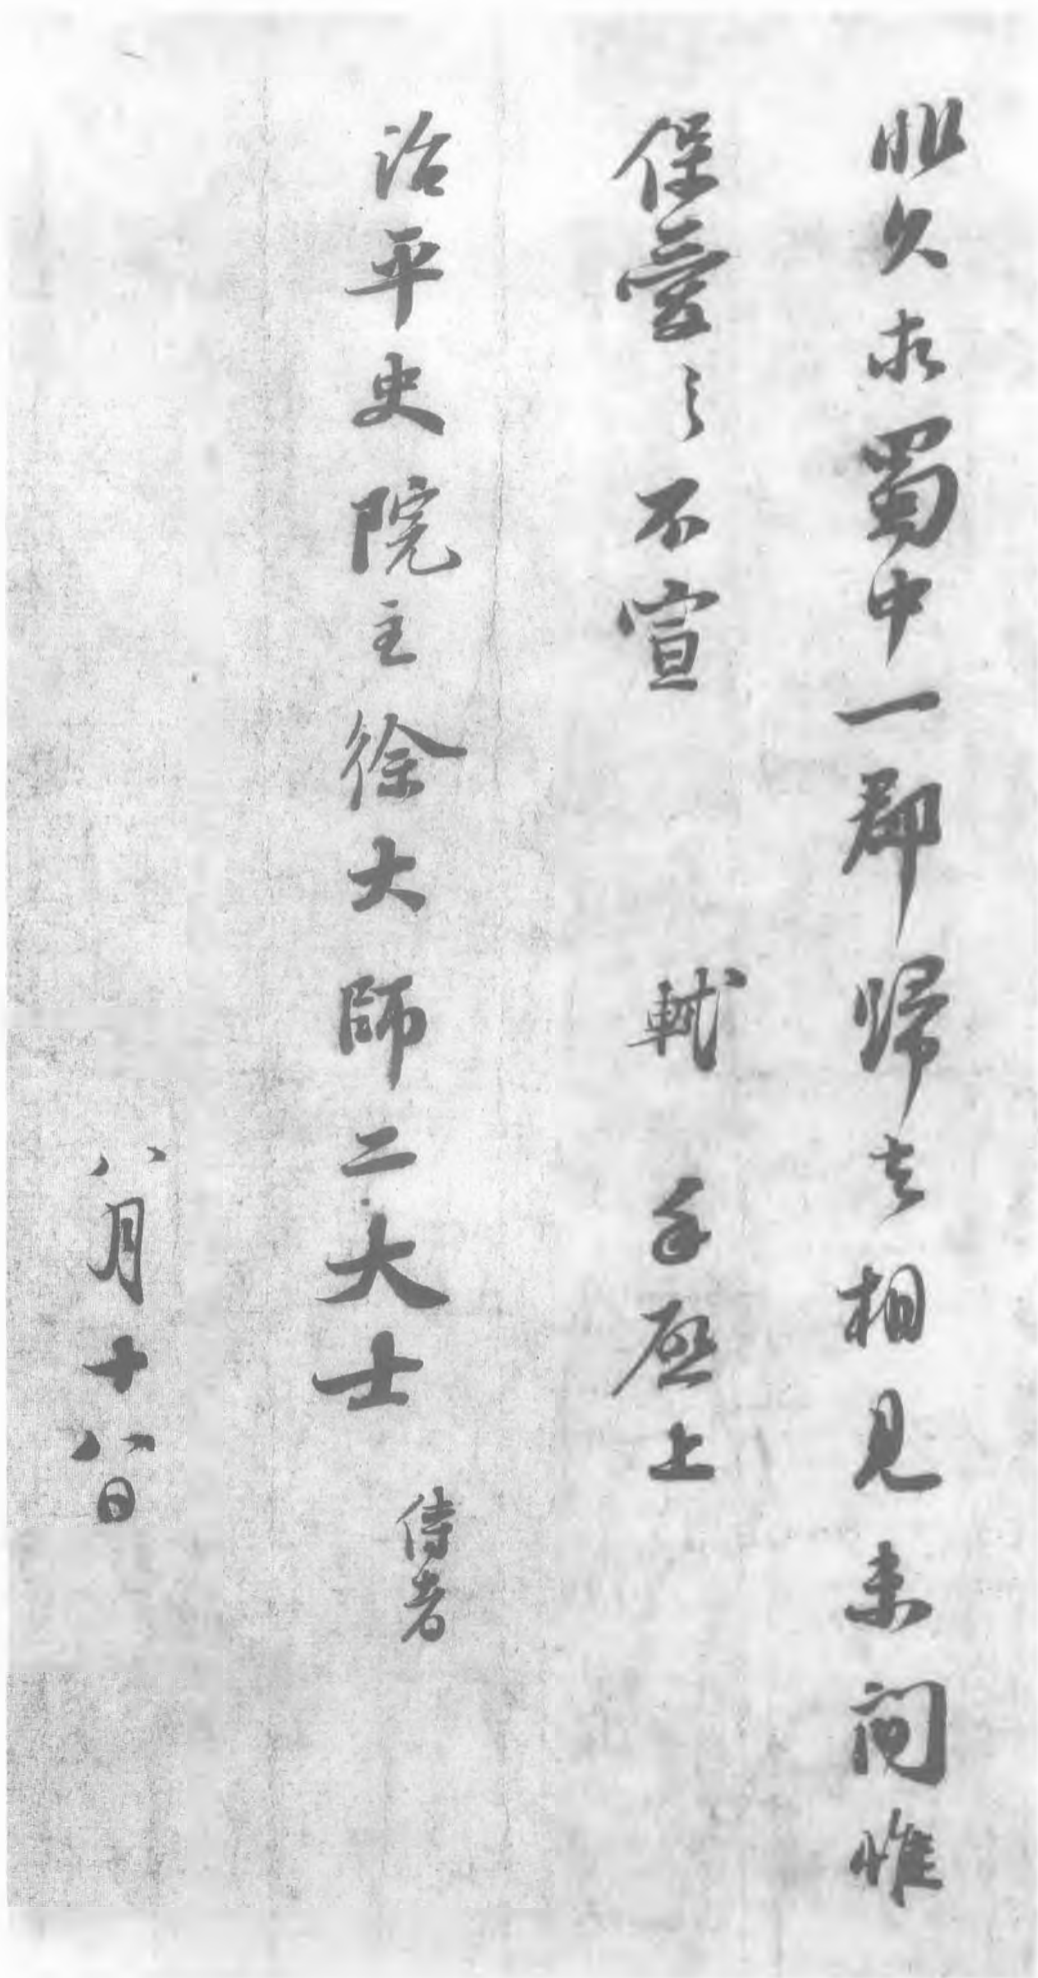 非久求蜀中一郡歸去相見未間惟
保愛之不宣 軾 手啓上
治平史院主徐大師二大士 侍者
八月十八日